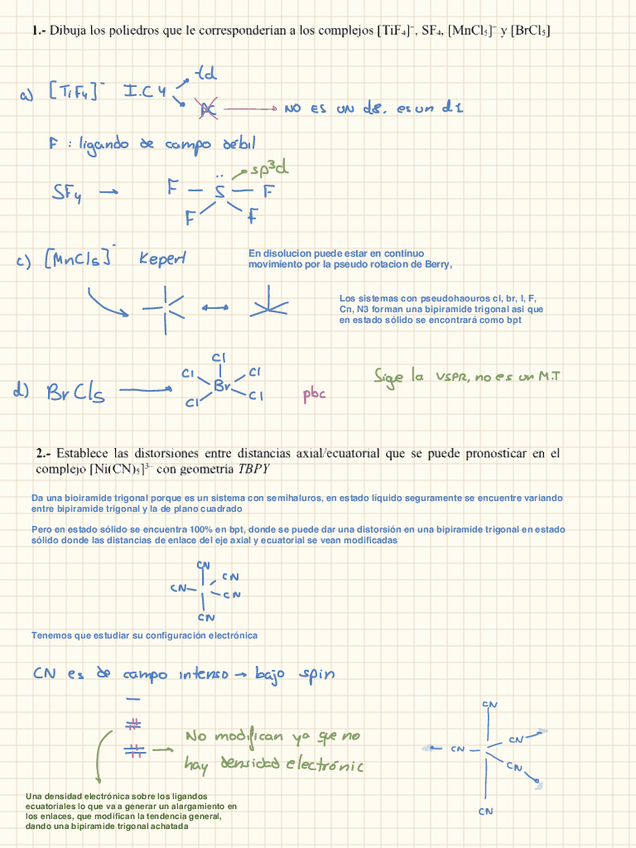 1.- Dibuja los poliedros que le corresponderían a los complejos [TiF₄]⁻, SF₄, [MnCl₅]⁻ y [BrCl₅]
a) [TiF₄]⁻ I.C 4
td
PC
NO ES UN d8. es un d1
F : ligando de campo débil
sp³d
SF₄ → F – S̈ – F
F F
c) [MnCl₅]⁻ Kepert
En disolucion puede estar en continuo
movimiento por la pseudo rotacion de Berry,
Los sistemas con pseudohaouros cl, br, I, F,
Cn, N3 forman una bipiramide trigonal asi que
en estado sólido se encontrará como bpt
Cl
Cl Cl
d) BrCl₅ → Br
Cl Cl
pbc
Sige la VSPR, no es un M.T
2.- Establece las distorsiones entre distancias axial/ecuatorial que se puede pronosticar en el
complejo [Ni(CN)₅]³⁻ con geometría TBPY
Da una bioiramide trigonal porque es un sistema con semihaluros, en estado líquido seguramente se encuentre variando
entre bipiramide trigonal y la de plano cuadrado
Pero en estado sólido se encuentra 100% en bpt, donde se puede dar una distorsión en una bipiramide trigonal en estado
sólido donde las distancias de enlace del eje axial y ecuatorial se vean modificadas
CN
CN
CN
CN
CN
Tenemos que estudiar su configuración electrónica
CN es de campo intenso → bajo spin
No modifican ya que no
hay densidad electrónic
CN
CN
CN
CN
CN
Una densidad electrónica sobre los ligandos
ecuatoriales lo que va a generar un alargamiento en
los enlaces, que modifican la tendencia general,
dando una bipiramide trigonal achatada